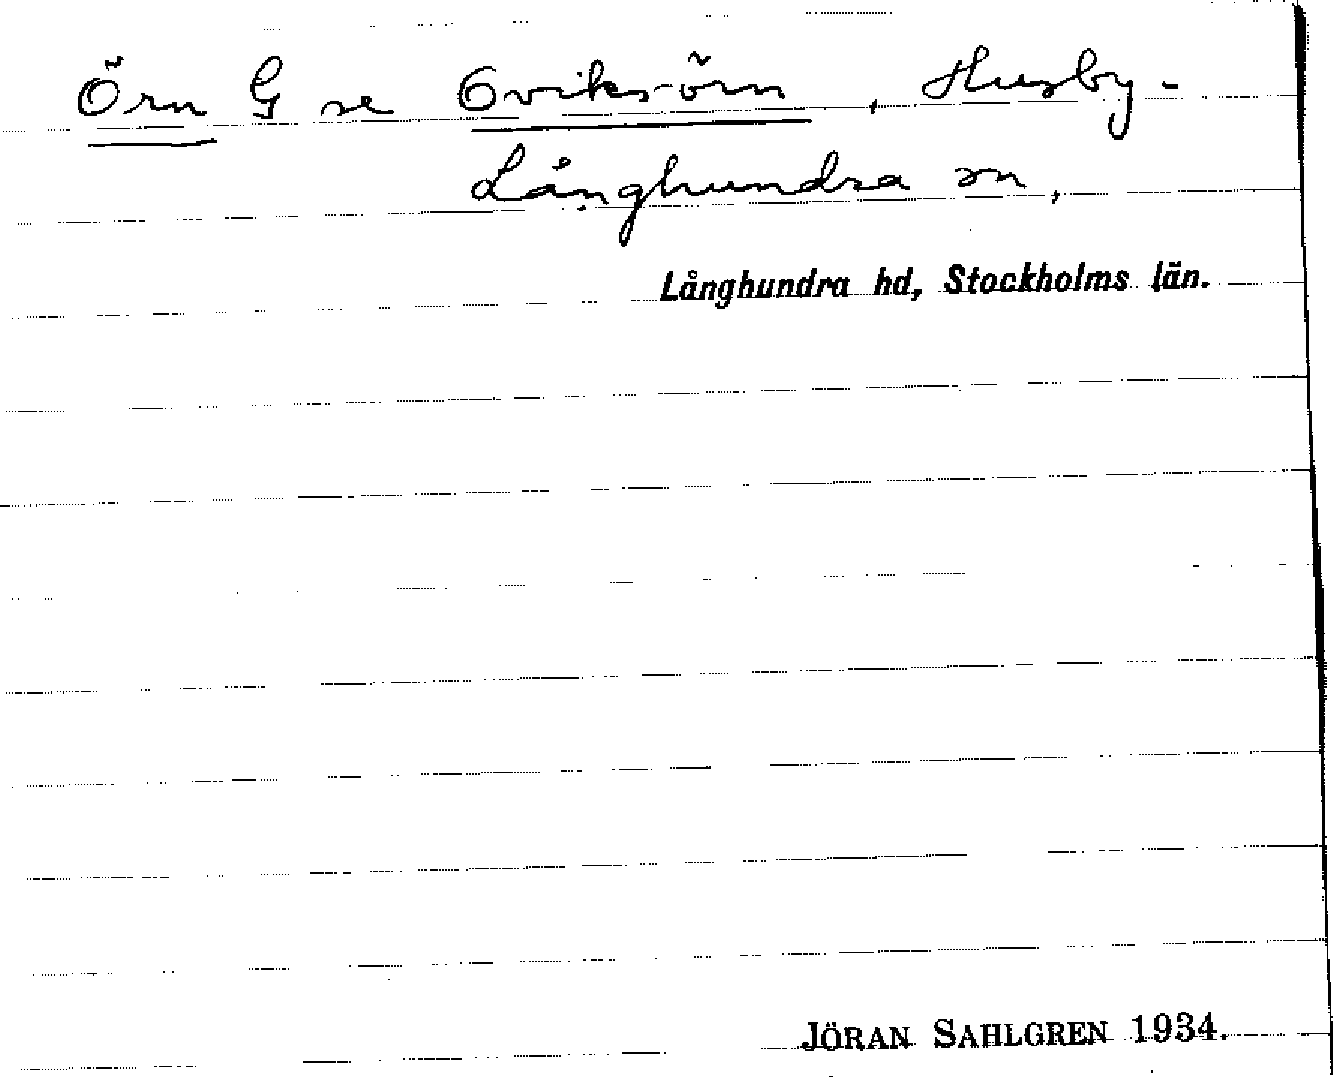 Örn G se Oviksörn, Husby-
Långhundra sn,
Långhundra hd, Stockholms län.
JÖRAN SAHLGREN 1934.